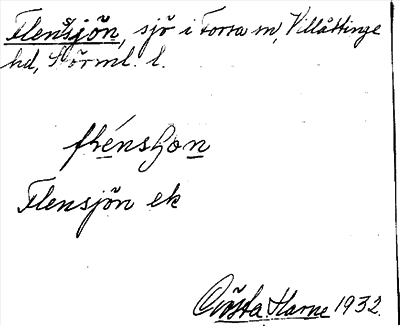 Flensjön, sjö i Torsa sn, Villåttinge
hd, Görml. l.
flénsʃon
Flensjön ek
Gösta Harne 1932.